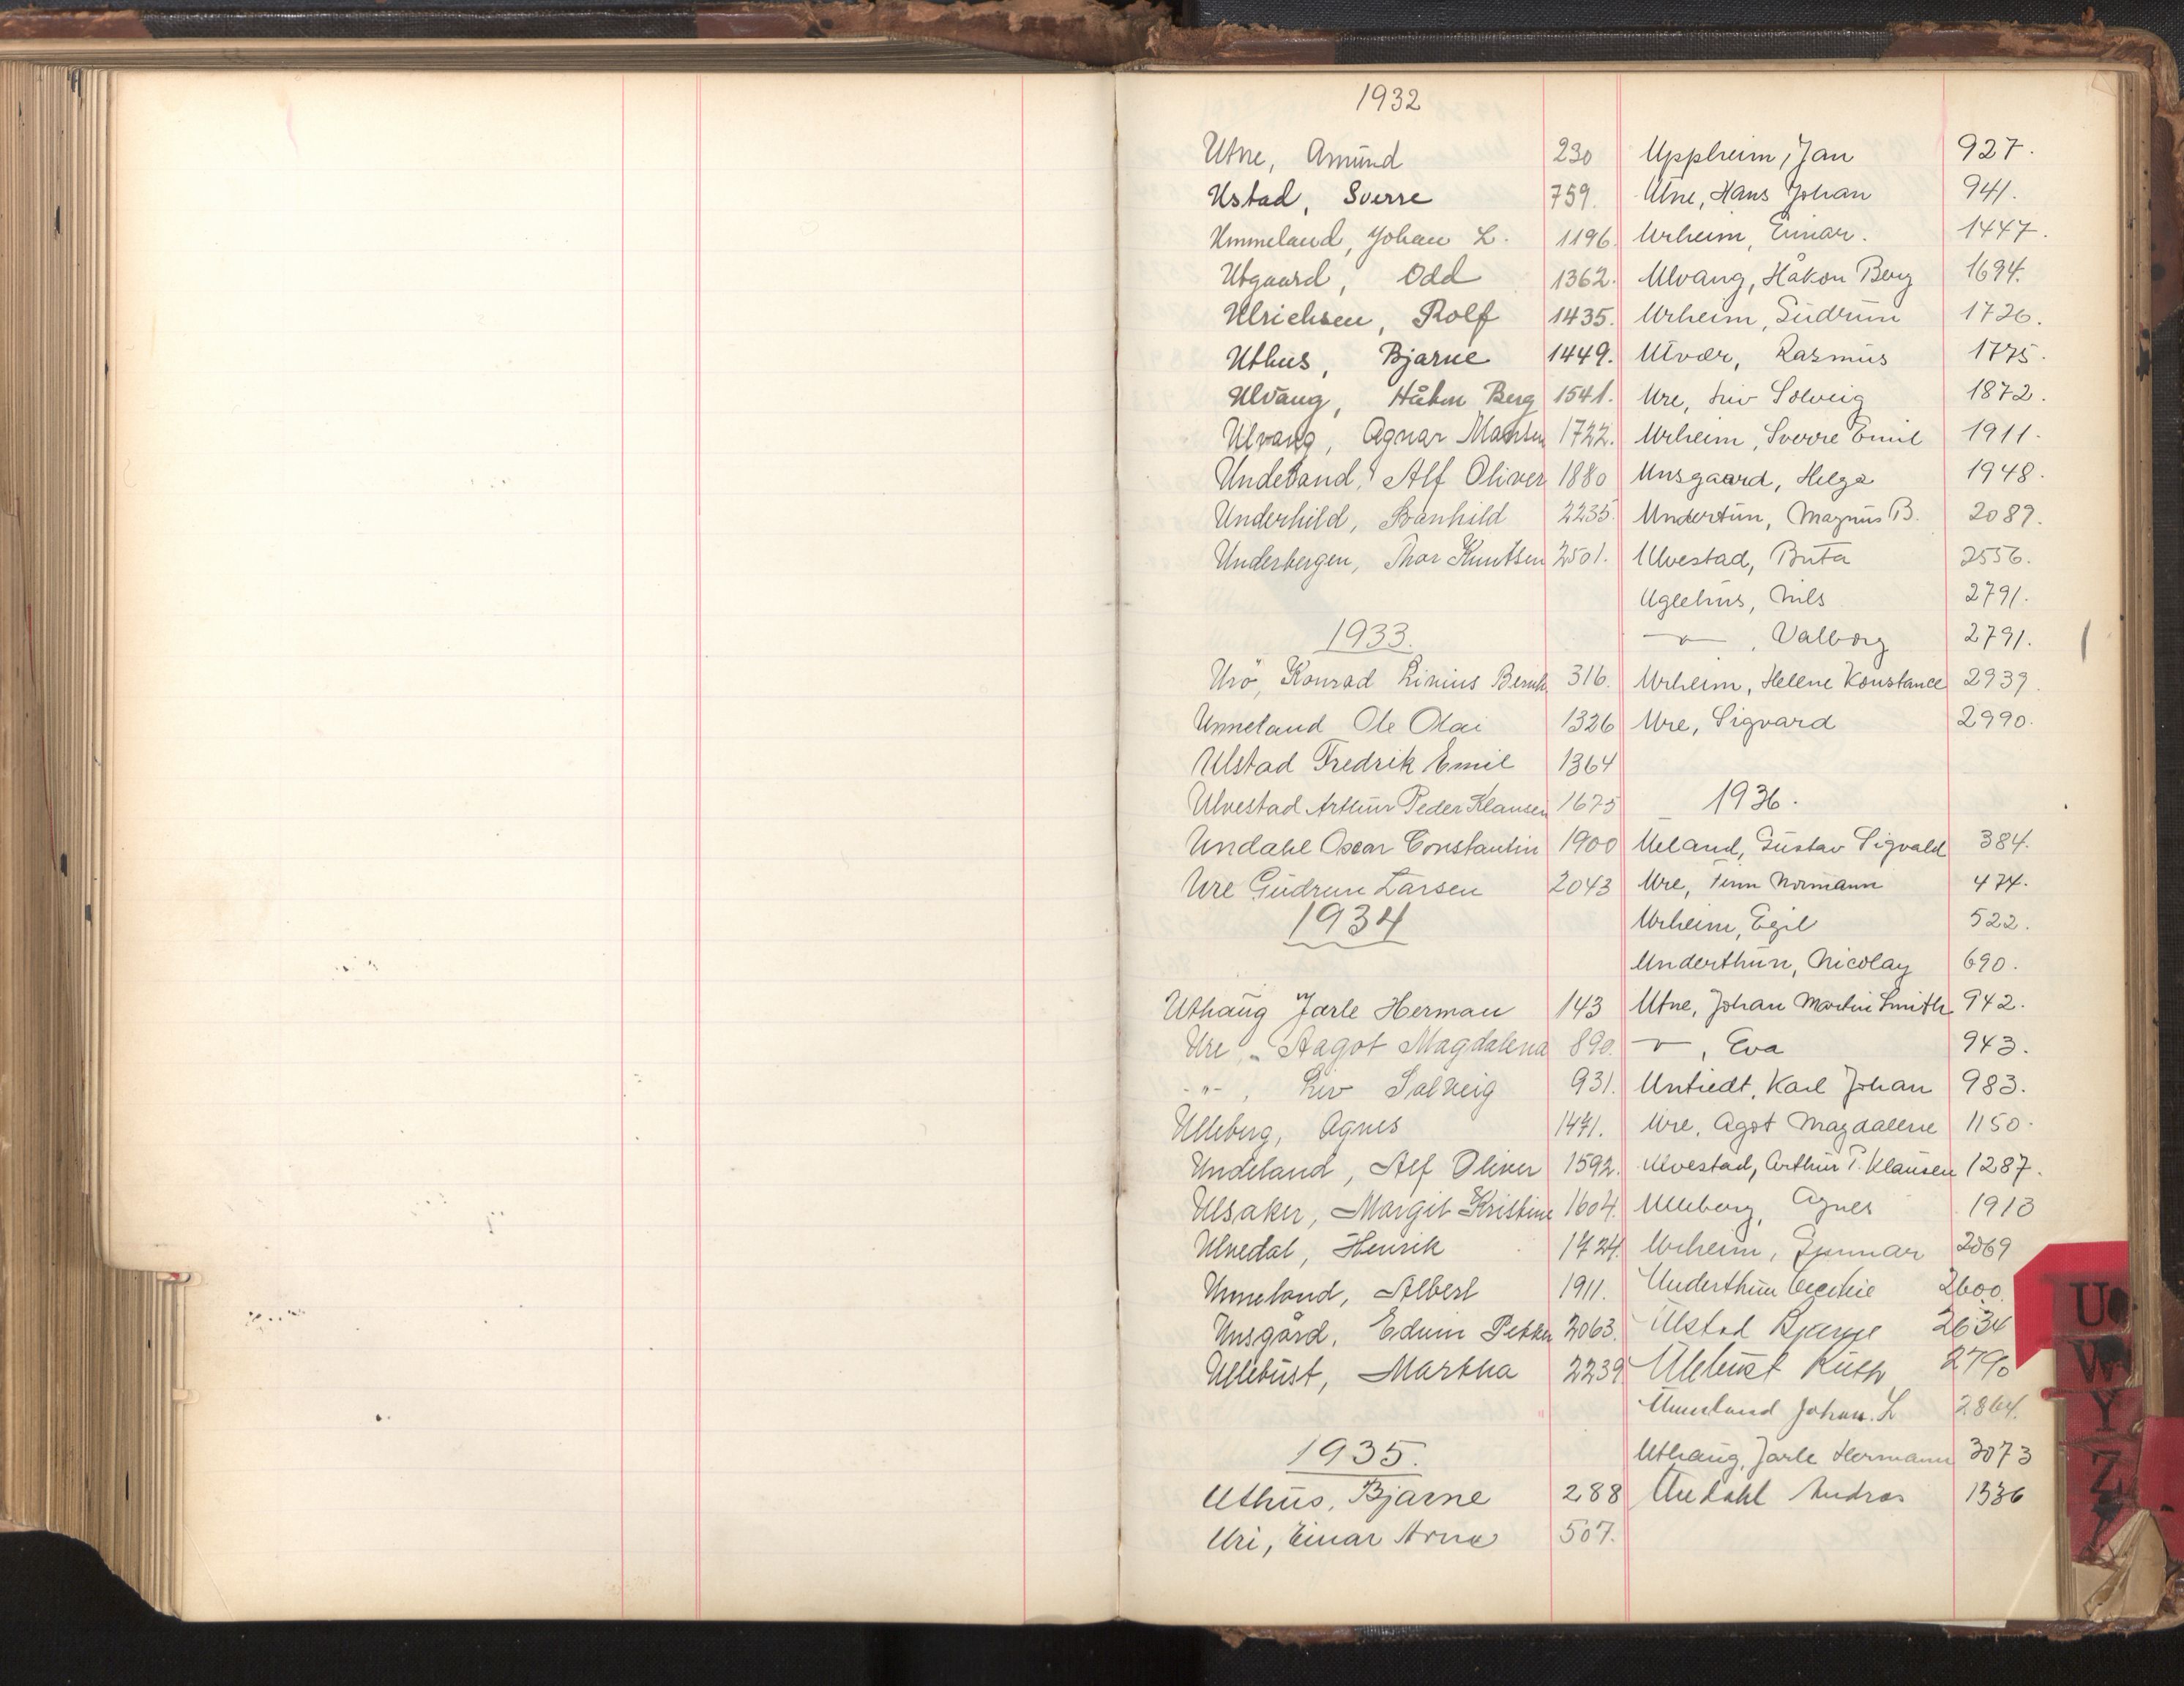 1932
Utne, Amund 230
Ustad, Sverre 759.
Ummeland, Johan L. 1196.
Utgaard, Odd 1362.
Ulrichsen, Rolf 1435.
Uthus, Bjarne 1449.
Ulvang, Håkon Berg 1541.
Ulvang, Agnar 1722.
Undeland, Alf Oliver 1880
Underhild, Svanhild 2235.
Underbergen, Thor Knutsen 2501.
1933.
Urø, Konrad Linius 316.
Unneland Ole Olai 1326
Ulstad Fredrik Emil 1364
Ulvestad Arthur Peder Klausen 1675
Undahl Oscar Constantin 1900
Ure Gudrun Larsen 2043
1934
Uthaug Jarle Herman 143
Ure, Aagot Magdalena 890.
-"-, Liv Solveig 931.
Ulleberg, Agnes 1471.
Undeland, Alf Oliver 1592.
Ulsaker, Margit Kristine 1604.
Ulvedal, Henrik 1724
Unneland, Albert 1911.
Unsgård, Edvin Petter 2063.
Ullebust, Martha 2239
1935.
Uthus, Bjarne 288
Uri, Einar Arne 507.
Uppheim, Jan 927.
Utne, Hans Johan 941.
Urheim, Einar. 1447.
Ulvang, Håkon Berg 1694.
Urheim, Gudrun 1726.
Utvær, Rasmus 1775.
Ure, Liv Solveig 1872.
Urheim, Sverre Emil 1911.
Unsgaard, Helga 1948.
Undertun, Magnus B. 2089.
Ulvestad, Bruta 2556.
Uglehus, Nils 2791.
—"—, Valborg 2791.
Urheim, Helene Konstance 2939.
Ure, Sigvard 2990.
1936.
Ueland, Gustav Sigvald 384.
Ure, Finn Normann 474.
Urheim, Egil 522.
Underthun, Nicolay 690.
Utne, Johan Martin Smith 942.
—"—, Eva 943.
Untiedt, Karl Johan 983.
Ure, Agot Magdalene 1150.
Ulvestad, Arthur P. Klausen 1287.
Ulleberg, Agnes 1913
Urheim, Gunnar 2069
Underthun 2600.
Ulstad Bjarne 2634
Ullebust Ruth 2790
Ummeland Johan. L 2864.
Uthaug, Jarle Hermann 3073
Undahl Andras 1336
U
W
Y
Z